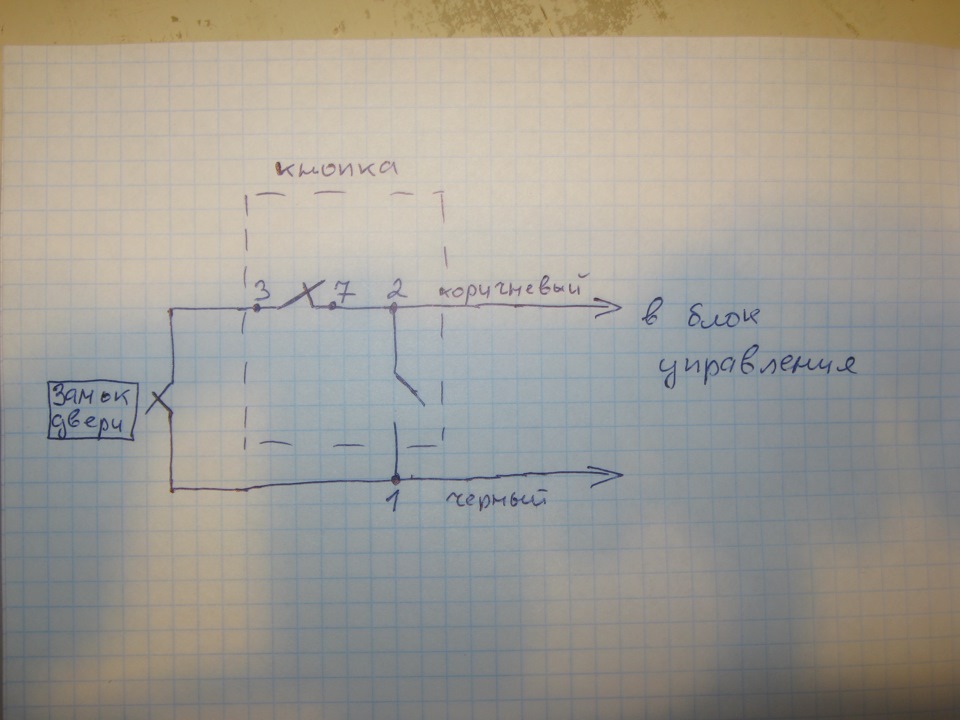 кнопка
3 7 2 коричневый
в блок
управления
Замок
двери
1 черный